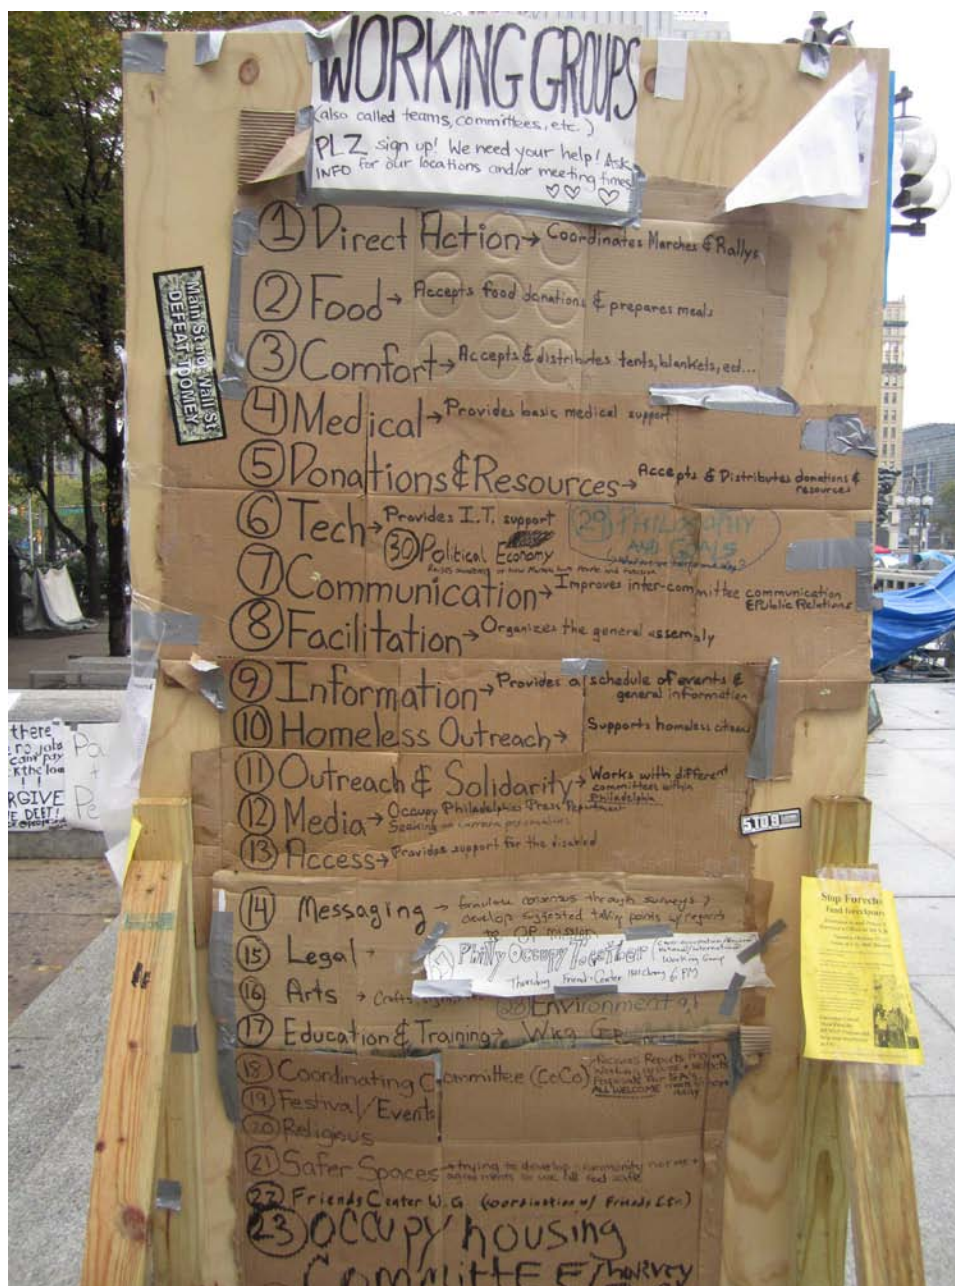 WORKING GROUPS
(also called teams, committees, etc.)
PLZ sign up! We need your help! Ask
INFO for our locations and/or meeting times
① Direct Action → Coordinates Marches & Rallys
② Food → Accepts food donations & prepares meals
③ Comfort → Accepts & distributes tents, blankets, ect...
④ Medical → Provides basic medical support
⑤ Donations & Resources → Accepts & Distributes donations &
resources
⑥ Tech → Provides I.T. support
29 PHILOSOPHY
AND GOALS
30 Political Economy
⑦ Communication → Improves inter-committee communication
& Public Relations
⑧ Facilitation → Organizes the general assembly
⑨ Information → Provides a schedule of events &
general information
⑩ Homeless Outreach → Supports homeless citizens
⑪ Outreach & Solidarity → Works with different
committees within
Philadelphia
⑫ Media → Occupy Philadelphia's Press Department
⑬ Access → Provides support for the disabled
⑭ Messaging → formulate consensus through surveys,
develop suggested talking points w/ regards
to OP mission
⑮ Legal →
Philly Occupy Together
Working Group
Thursday Friends Center 6 PM
⑯ Arts → Crafts, signs
28 Environmental
⑰ Education & Training → Wkg
⑱ Coordinating Committee (CoCo)
ALL WELCOME
⑲ Festival/Events
⑳ Religious
21 Safer Spaces → trying to develop community norms +
agreements so we all feel safe
22 Friends Center W.G (coordination w/ Friends Ctr.)
23 OCCUPY housing
COMMITTEE/
Main St not Wall St
DEFEAT TOOMEY
there
no jobs
cant pay
k the loa
RGIVE
E DEBT!
Stop Forech